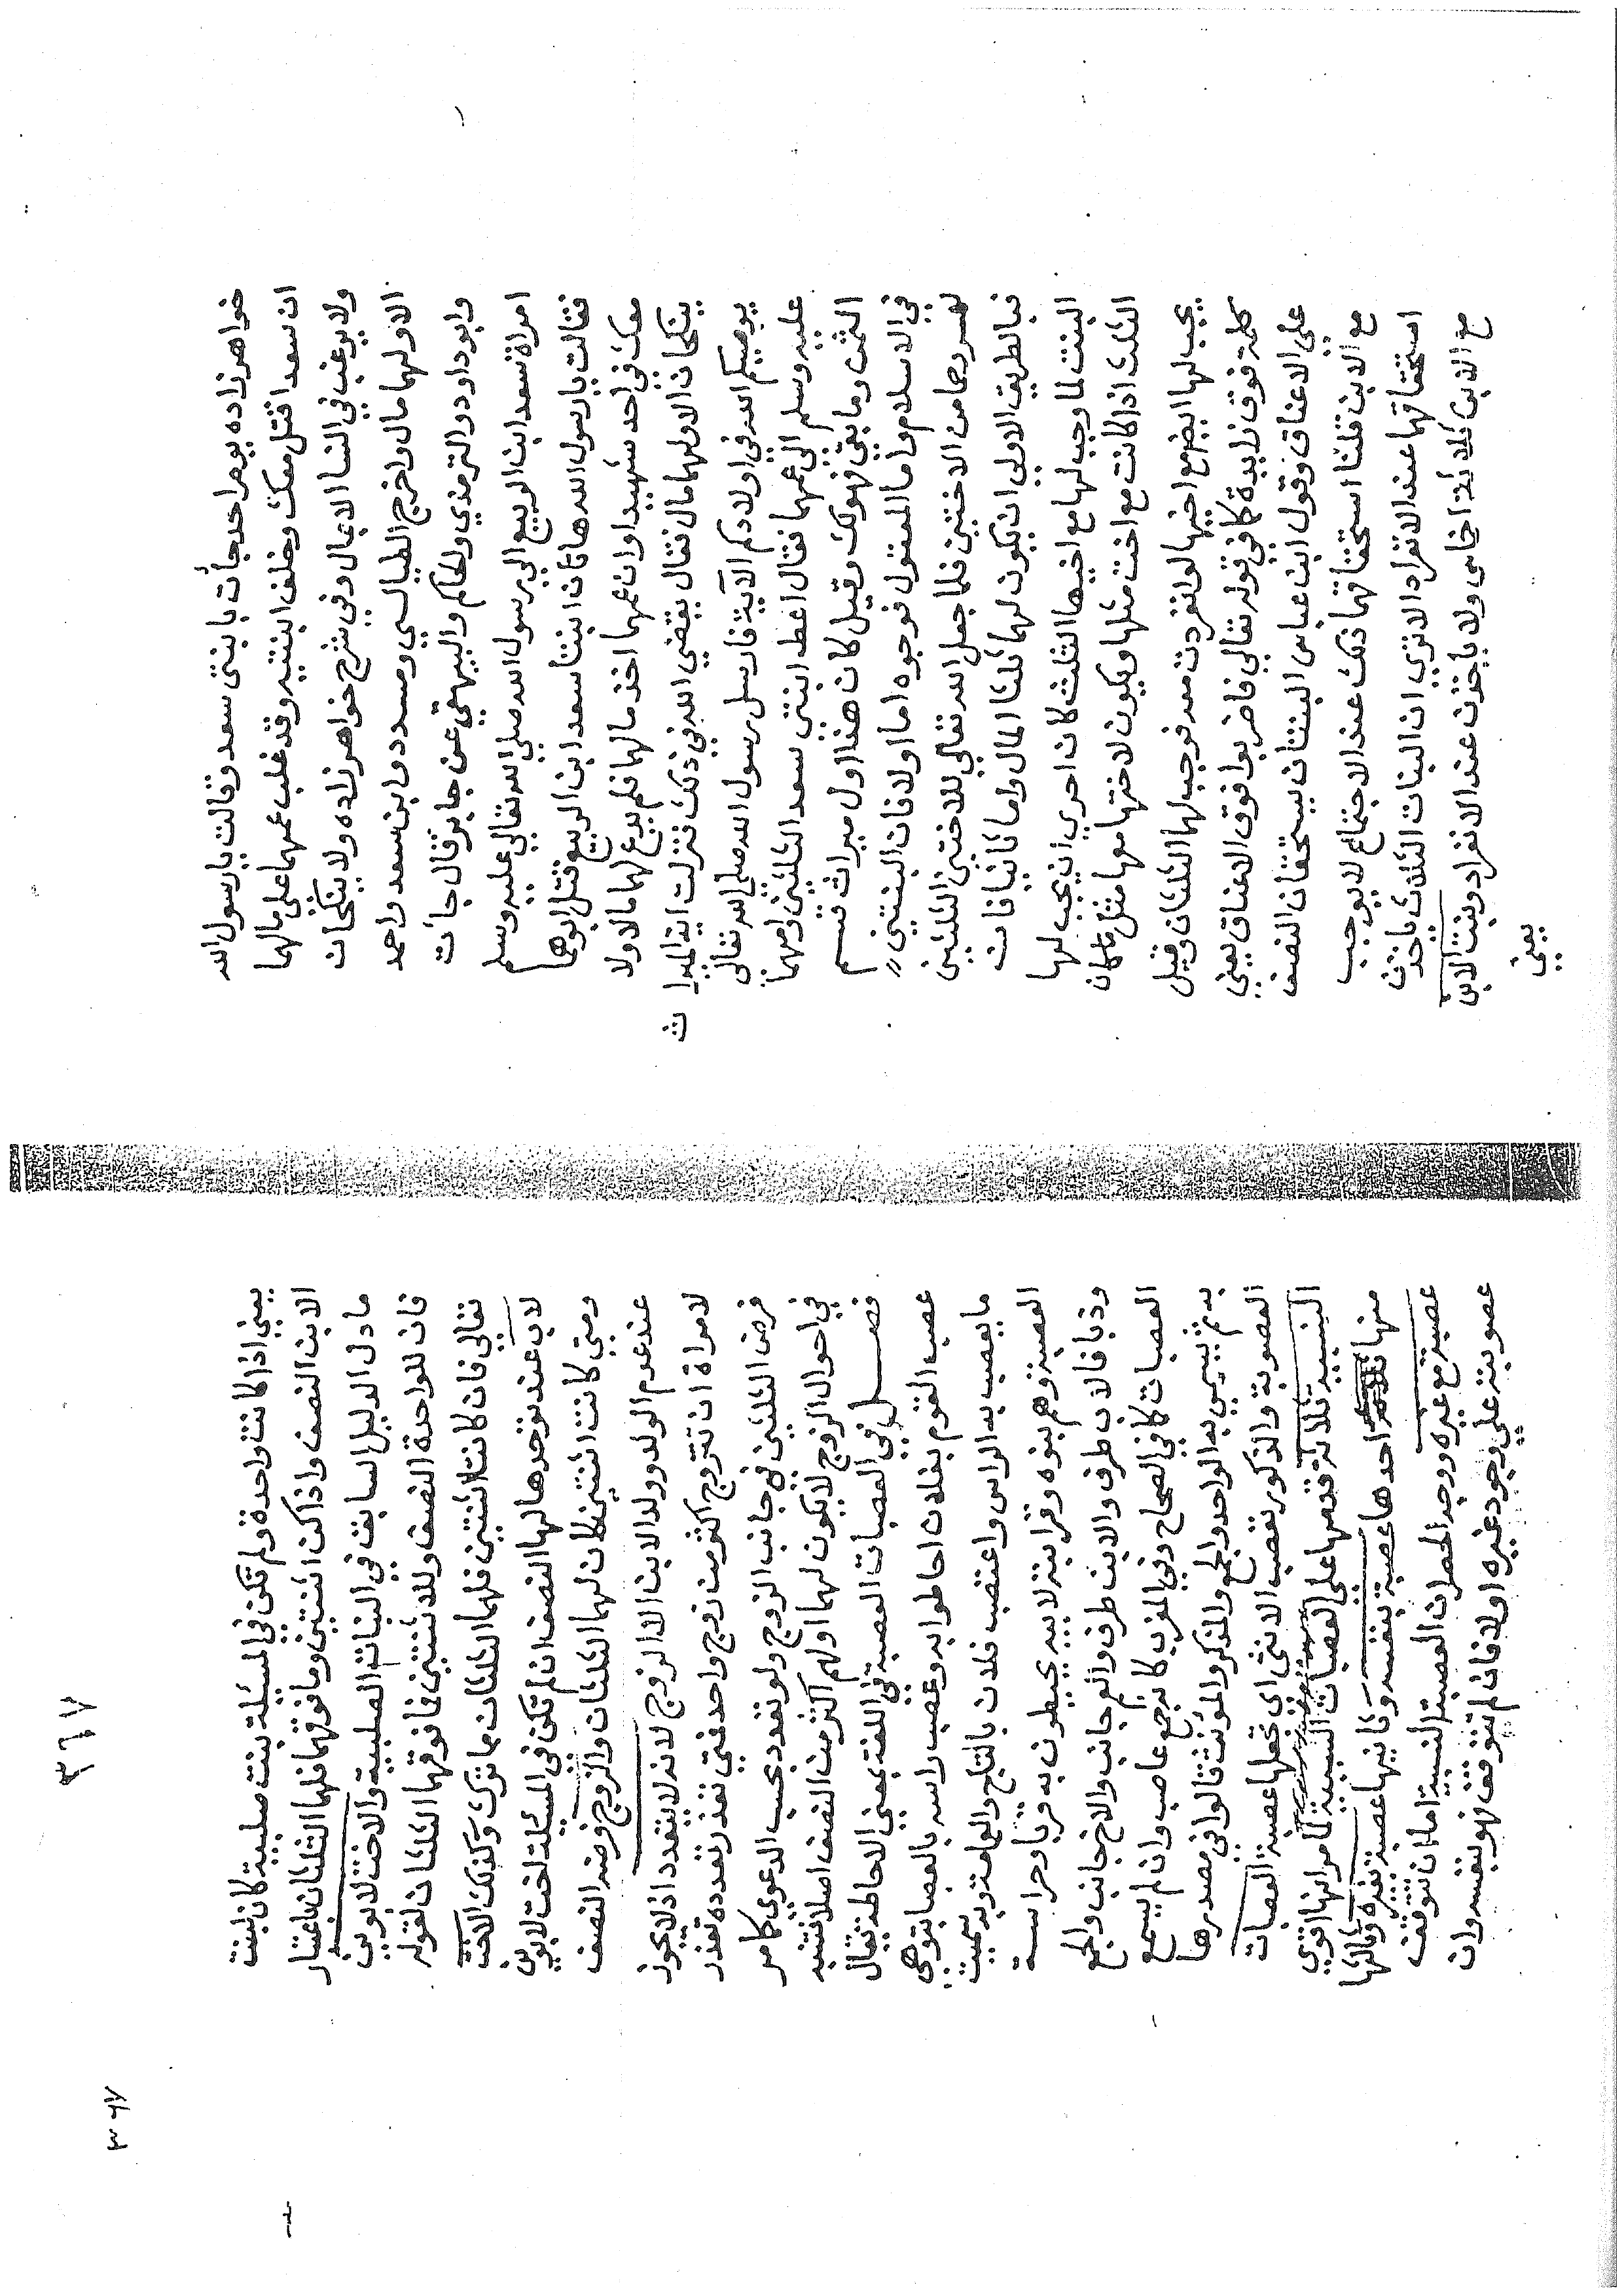 خواهرزاده يوم احد جأت بابنتى سعد وقالت يارسول الله
ان سعدا قتل معك وخلف ابنتيه وقد غلب عمهما على مالهما
ولا يرغب في النسا الا بمال وفي شرح خواهرزاده ولا ينكحان
الا ولهما مال واخرج الطيالسي ومسدد وابن سعد واحمد
وابو داود والترمذي والحاكم والبيهقي عن جابر قال جأت
امراة سعد ابن الربيع الى رسول الله صلى الله تعالى عليه وسلم
فقالت يارسول الله هاتان ابنتا سعد ابن الربيع قتل ابوهما
معك في احد شهيدا وان عمهما اخذ مالهما فلم يدع لهما مالا ولا
ينكحان الا ولهما مال فقال يقضي الله في ذلك فنزلت آية الميرا
ث
يوصيكم الله في اولادكم الآية فارسل رسول الله صلى الله تعالى
عليه وسلم الى عمهما فقال اعط ابنتى سعد الثلثين وامهما
الثمن وما بقي فهو لك وقيل كان هذا اول ميراث قسم
في الاسلام واما المعقول فوجوه اما اولا فان البنتين
امس رحما من الاختين فلما جعل الله تعالى للاختين الثلثين
فبالطريق الاولى ان يكون لهما ثلثا المال واما ثانيا فان
البنت لما وجب لها مع اخيها الثلث كان احرى ان يجب لها
الثلث اذا كانت مع اخت مثلها ويكون لاختها معها مثل ما كان
يجب لها ايضا مع اخيها لو انفردت معه فوجب لهما الثلثان وقيل
كلمة فوق زايدة كما في قوله تعالى فاضربوا فوق الاعناق يعني
على الاعناق وقول ابن عباس البنتان يستحقان النصف
مع الابن قلنا استحقاقهما ذلك عند الاجتماع لا يوجب
استحقاقهما عند الانفراد الا ترى ان البنات الثلاث ياخذن
مع الابن ثلاثة اخماس ولا ياخذن عند الانفراد وبنت الابن
يعني
٣٦٧
٣٦٧
يعني اذا كانت واحدة ولم تكن في المسئلة بنت صلبية كان لبنت
الابن النصف واذا كن اثنتين وما فوقهما فلهما الثلثان باعتبار
ما دل الدليل السابق في البنات الصلبية والاخت لابوين
فان للواحدة النصف وللاثنتين فما فوقهما الثلثان لقوله
تعالى فان كانتا اثنتين فلهما الثلثان مما ترك وكذلك الاخت
لاب عند توحدها لها النصف ان لم تكن في المسئلة اخت لابوين
ومتى كانت اثنتين كان لهما الثلثان والزوج فرضه النصف
عند عدم الولد وولد الابن الا الزوج لانه لا يتعدد اذ لا يجوز
لامراة ان تتزوج اكثر من زوج واحد فمتى تعذر تعدده تعذر
فرض الثلثين في جانب الزوج ولو تعدد بحسب الدعوى كما مر
في احوال الزوج لا يكون لهما او لهم اكثر من النصف اصلا تنبيه
فصل في العصبات العصبة في اللغة بمعنى الاحاطة يقال
عصب القوم بفلان احاطوا به وعصب راسه بالعصابة وهي
ما يعصب به الراس واعتصب فلان بالتاج والعمامة وبه سميت
العصبة وهم بنوه وقرابته لابيه يحيطون به قربا وحراسة
وذبا فالاب طرف والابن طرف والعم جانب والاخ جانب والجمع
العصبات كما في الصحاح وفي المغرب كانه جمع عاصب وان لم يسمع
به ثم سمي به الواحد والجمع والمذكر والمؤنث قالوا في مصدرها
العصوبة والذكور تعصب الانثى اي تجعلها عصبة العصبات
النسبية ثلاثة قدمها على العصبات السببية لما مر انها اقوى
منها احدها عصبة بنفسه وثانيها عصبة بغيره وثالثها
عصبة مع غيره ووجه الحصر ان العصبة النسبية اما ان تتوقف
عصوبته على وجود غيره اولا فان لم تتوقف فهو بنفسه وان